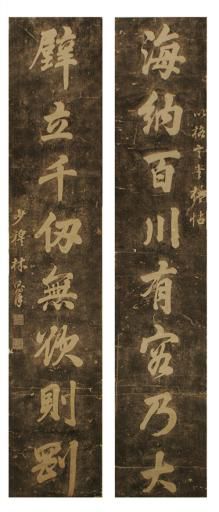 海納百川有容乃大
壁立千仞無欲則剛
少穆林